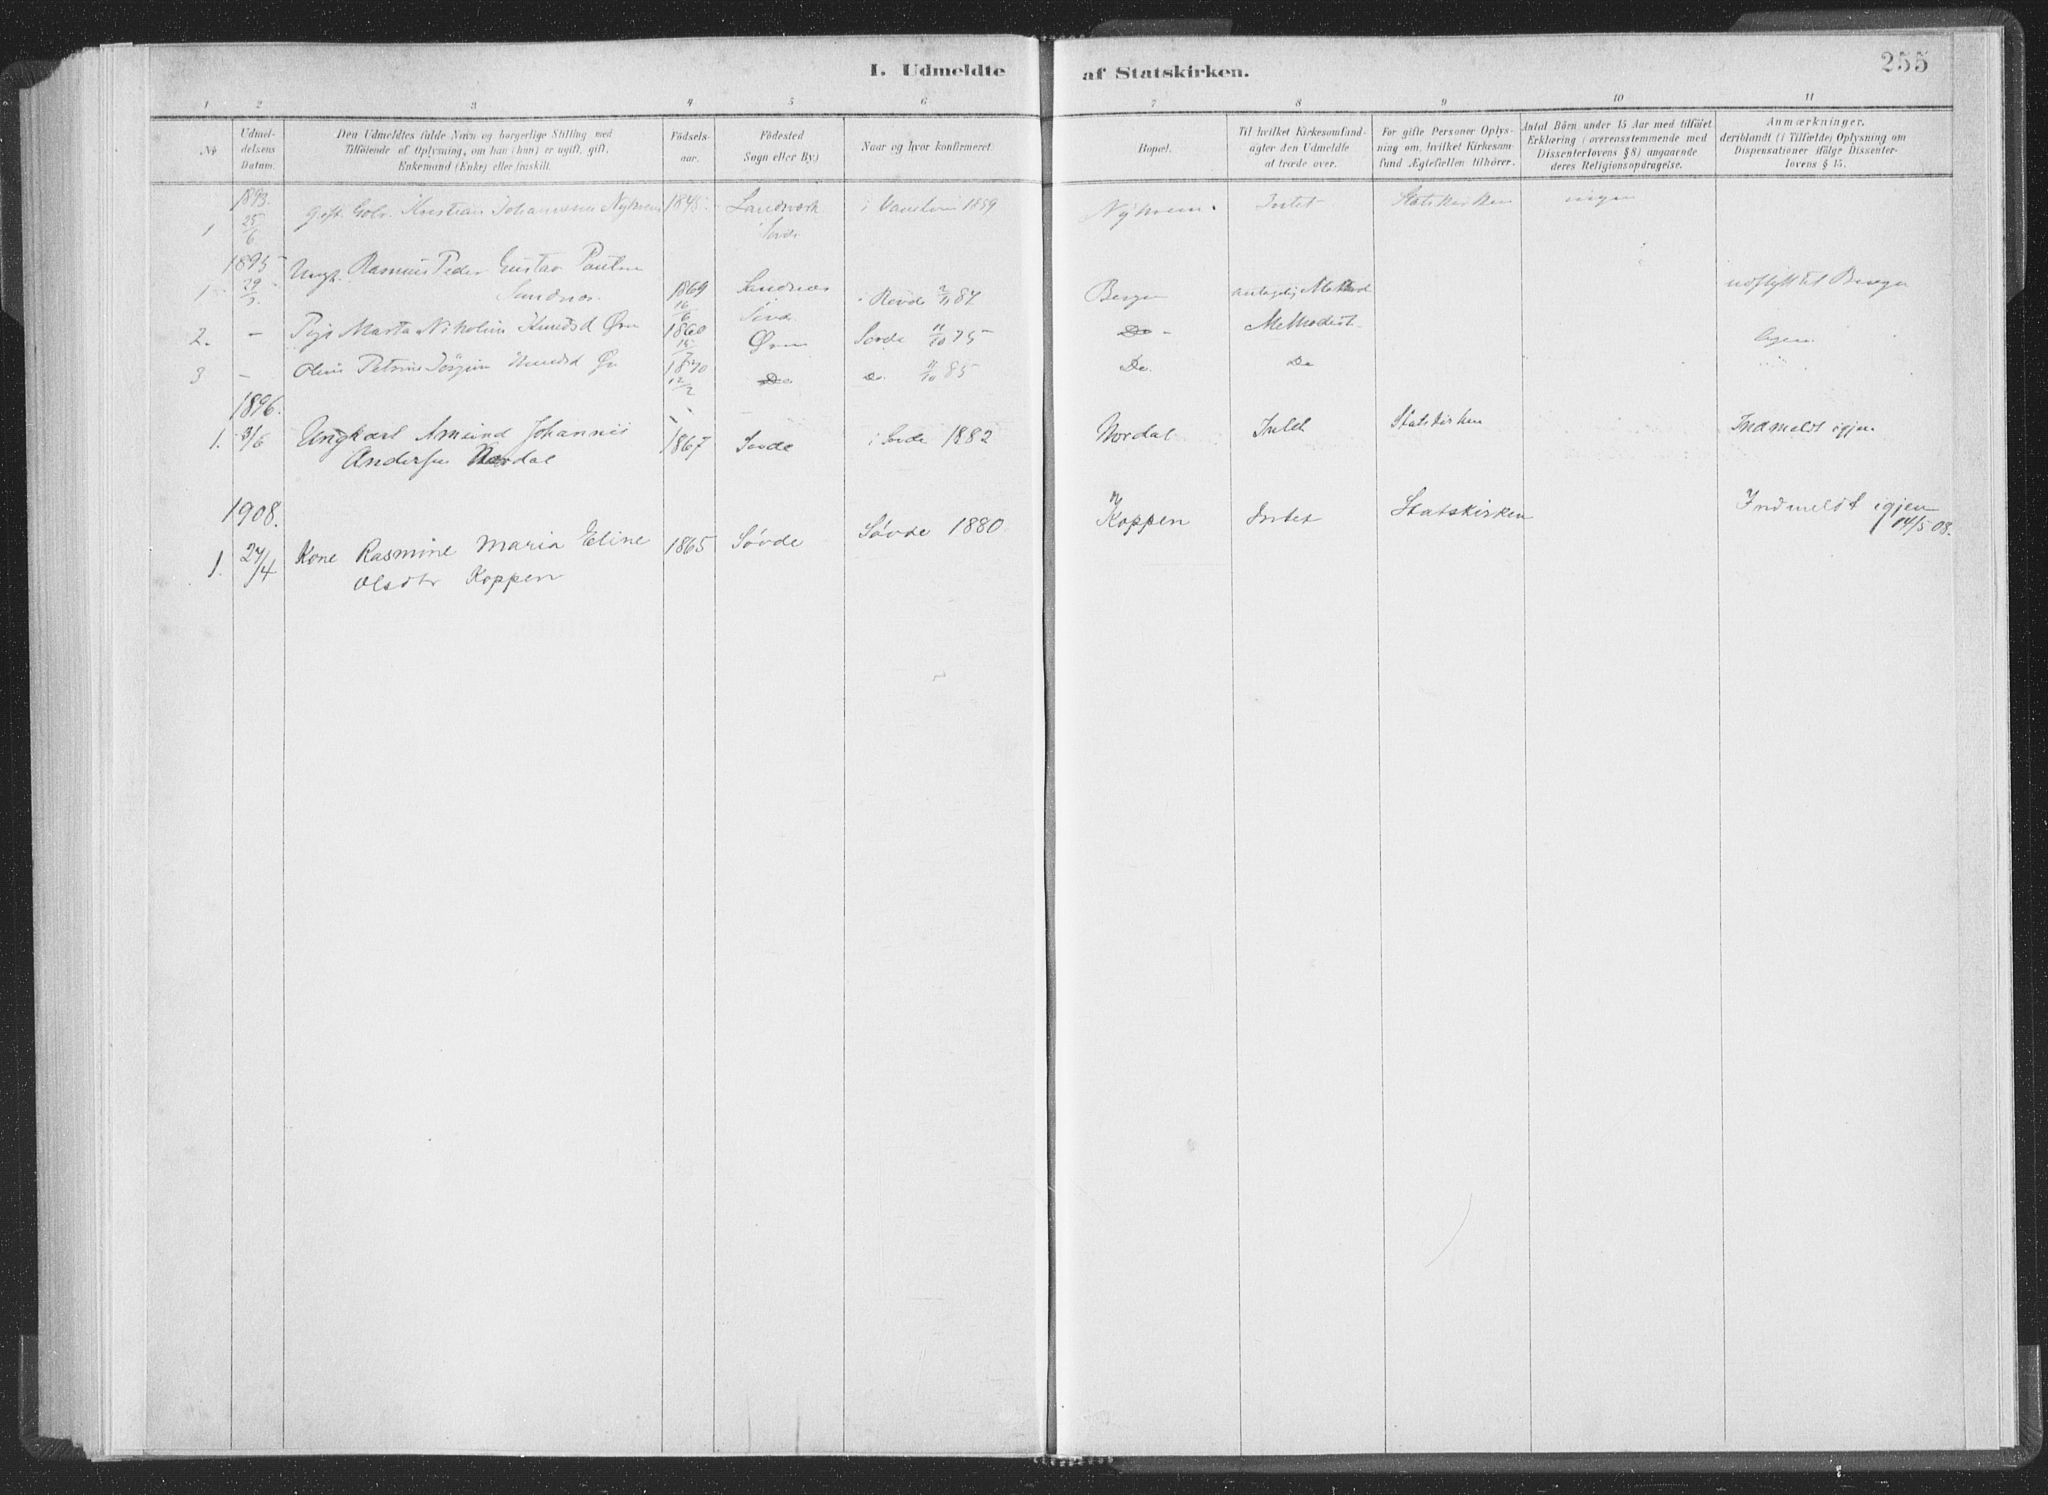 I. Udmeldte af Statskirken.
255
1 2 3 4 5 6 7 8 9 10 11
No
Udmeldelsens Datum.
Den Udmeldtes fulde Navn og borgerlige Stilling med
Tilföiende af Oplysning, om han (hun) er ugift, gift,
Enkemand (Enke) eller fraskilt.
Födselsaar.
Födested
(Sogn eller By.)
Naar og hvor konfirmeret.
Bopæl.
Til hvilket Kirkesamfund
agter den Udmeldte
at træde over.
For gifte Personer Oplysning
om, hvilket Kirkesamfund
Ægtefællen tilhörer.
Antal Börn under 15 Aar med tilföiet
Erklæring (overensstemmende med
Dissenterlovens § 8) angaaende
deres Religionsopdragelse.
Anmærkninger,
deriblandt (i Tilfælde) Oplysning om
Dispensationer ifølge Dissenterlovens
§ 15.
1893.
1 25/6 Kristian Johannesen 1845 i 1859 Intet Statskirken ingen
1895
1 29/ Ungk. Rasmus Peder Gustav 1869 2/11 84 Bergen udflyttet til Bergen
Sandnæs 16/6
2. - Pige Marta Knudsd Ørn 1860 Ørn Sovde 11/10 75 Do - Methodist
3 - Petrine Knudsd 1870 12/2 Do Do 11/10 85 Do. Do
1896.
1. 3/6 Ungkarl Amund Johannes 1867 Sovde i Sovde 1882 Nordal Intet Statskirken Indmeldt igjen
Andersen Nordal
1908.
1. 27/4 Kone Rasmine Maria Eline 1865 Søvde Søvde 1880. Koppen Intet Statskirken Indmeldt igjen
Olsdtr Koppen
14/5 08.